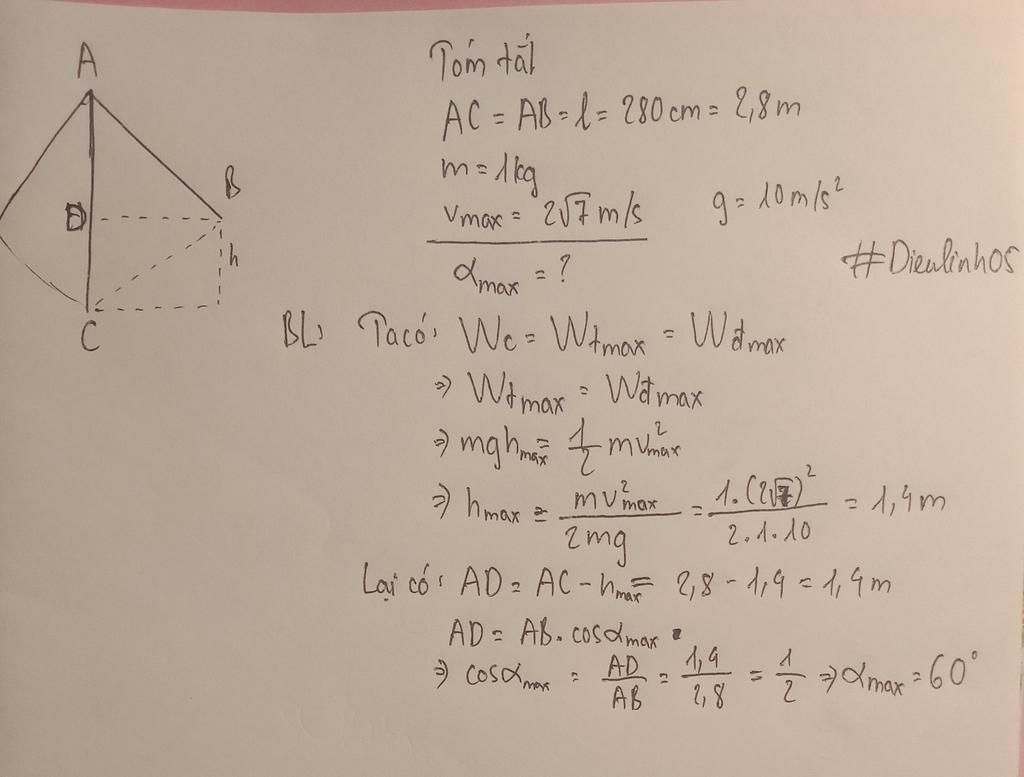 A
B
D
h
C
Tóm tắt
AC = AB = l = 280 cm = 2,8 m
m = 1kg
vmax = 2√7 m/s g = 10 m/s²
αmax = ?
#Dieulinh05
BL: Ta có: Wc = Wtmax = Wđmax
⇒ Wtmax = Wđmax
⇒ mghmax = 1/2 mv²max
⇒ hmax = mv²max/2mg = 1.(2√7)²/2.1.10 = 1,4 m
Lại có: AD = AC - hmax = 2,8 - 1,4 = 1,4 m
AD = AB. cosαmax
⇒ cosαmax = AD/AB = 1,4/2,8 = 1/2 ⇒ αmax = 60°